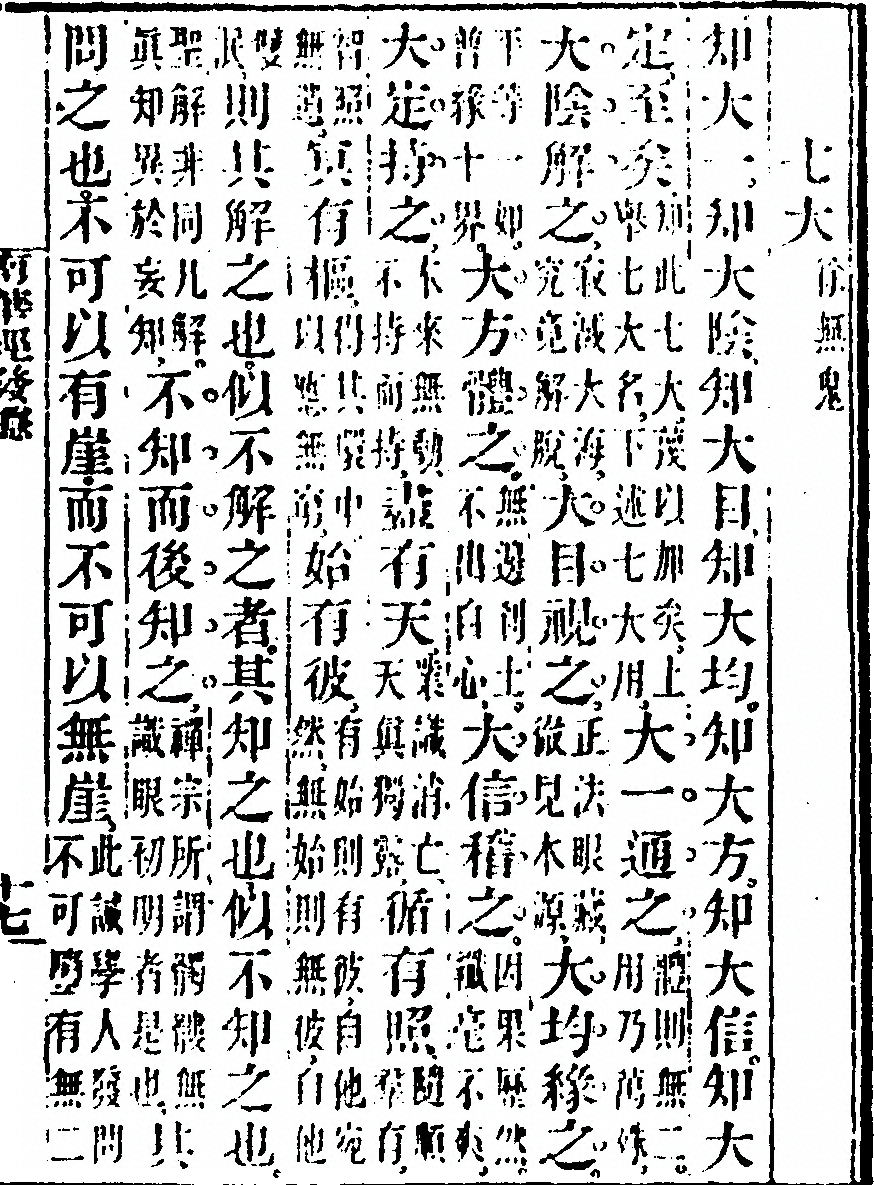 七大 徐無鬼
知大一、知大陰、知大目、知大均。知大方。知大信。知大
定、至矣、知此七大蔑以加矣、上舉七大名、下述七大用、大一通之、體則無二。用乃萬殊、
大陰解之、寂滅大海、究竟解脫、大目視之、正法眼藏、徹見本源、大均緣之、
平等一如、普緣十界、大方體之、無邊刹土、不出自心、大信稽之、因果歷然、纖毫不爽、
大定持之、本來無動、不持而持、盡有天、業識消亡、天真獨露、循有照、隨順羣有、
智照無遺、冥有樞、得其環中以應無窮、始有彼、有始則有彼、自他宛然、無始則無彼、自他
雙泯、則其解之也。似不解之者。其知之也、似不知之也。
聖解非同凡解。眞知異於妄知、不知而後知之、禪宗所謂髑髏無識眼初明者是也、其
問之也。不可以有崖、而不可以無崖、此誡學人發問不可墮有無二
南華經發隱
十七